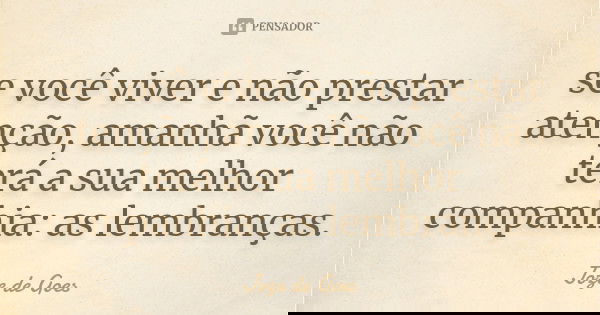 PENSADOR
se você viver e não prestar
atenção, amanhã você não
terá a sua melhor
companhia: as lembranças.
Joze de Goes